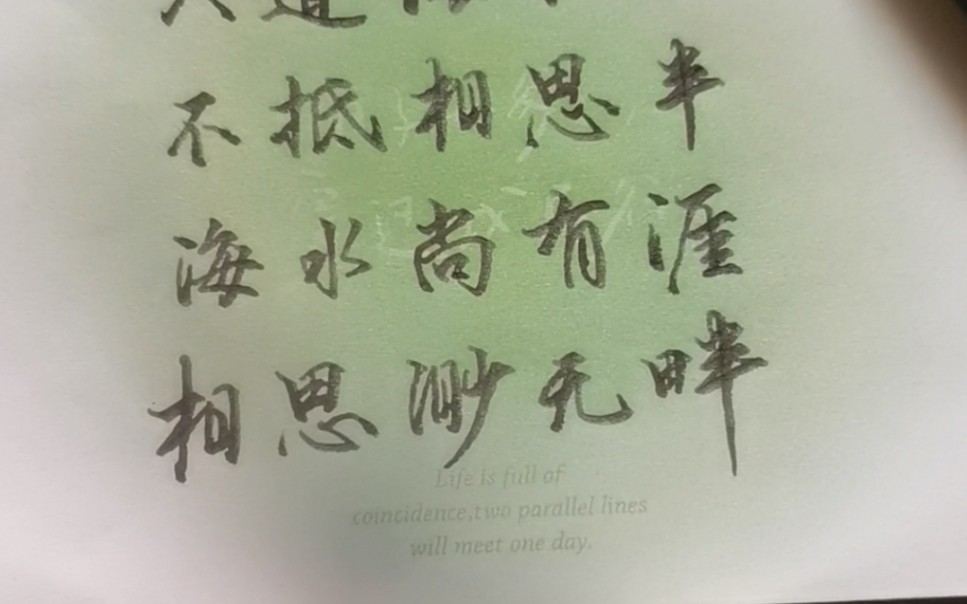 人道海水深
不抵相思半
海水尚有涯
相思渺无畔
Life is full of
coincidence,two parallel lines
will meet one day.